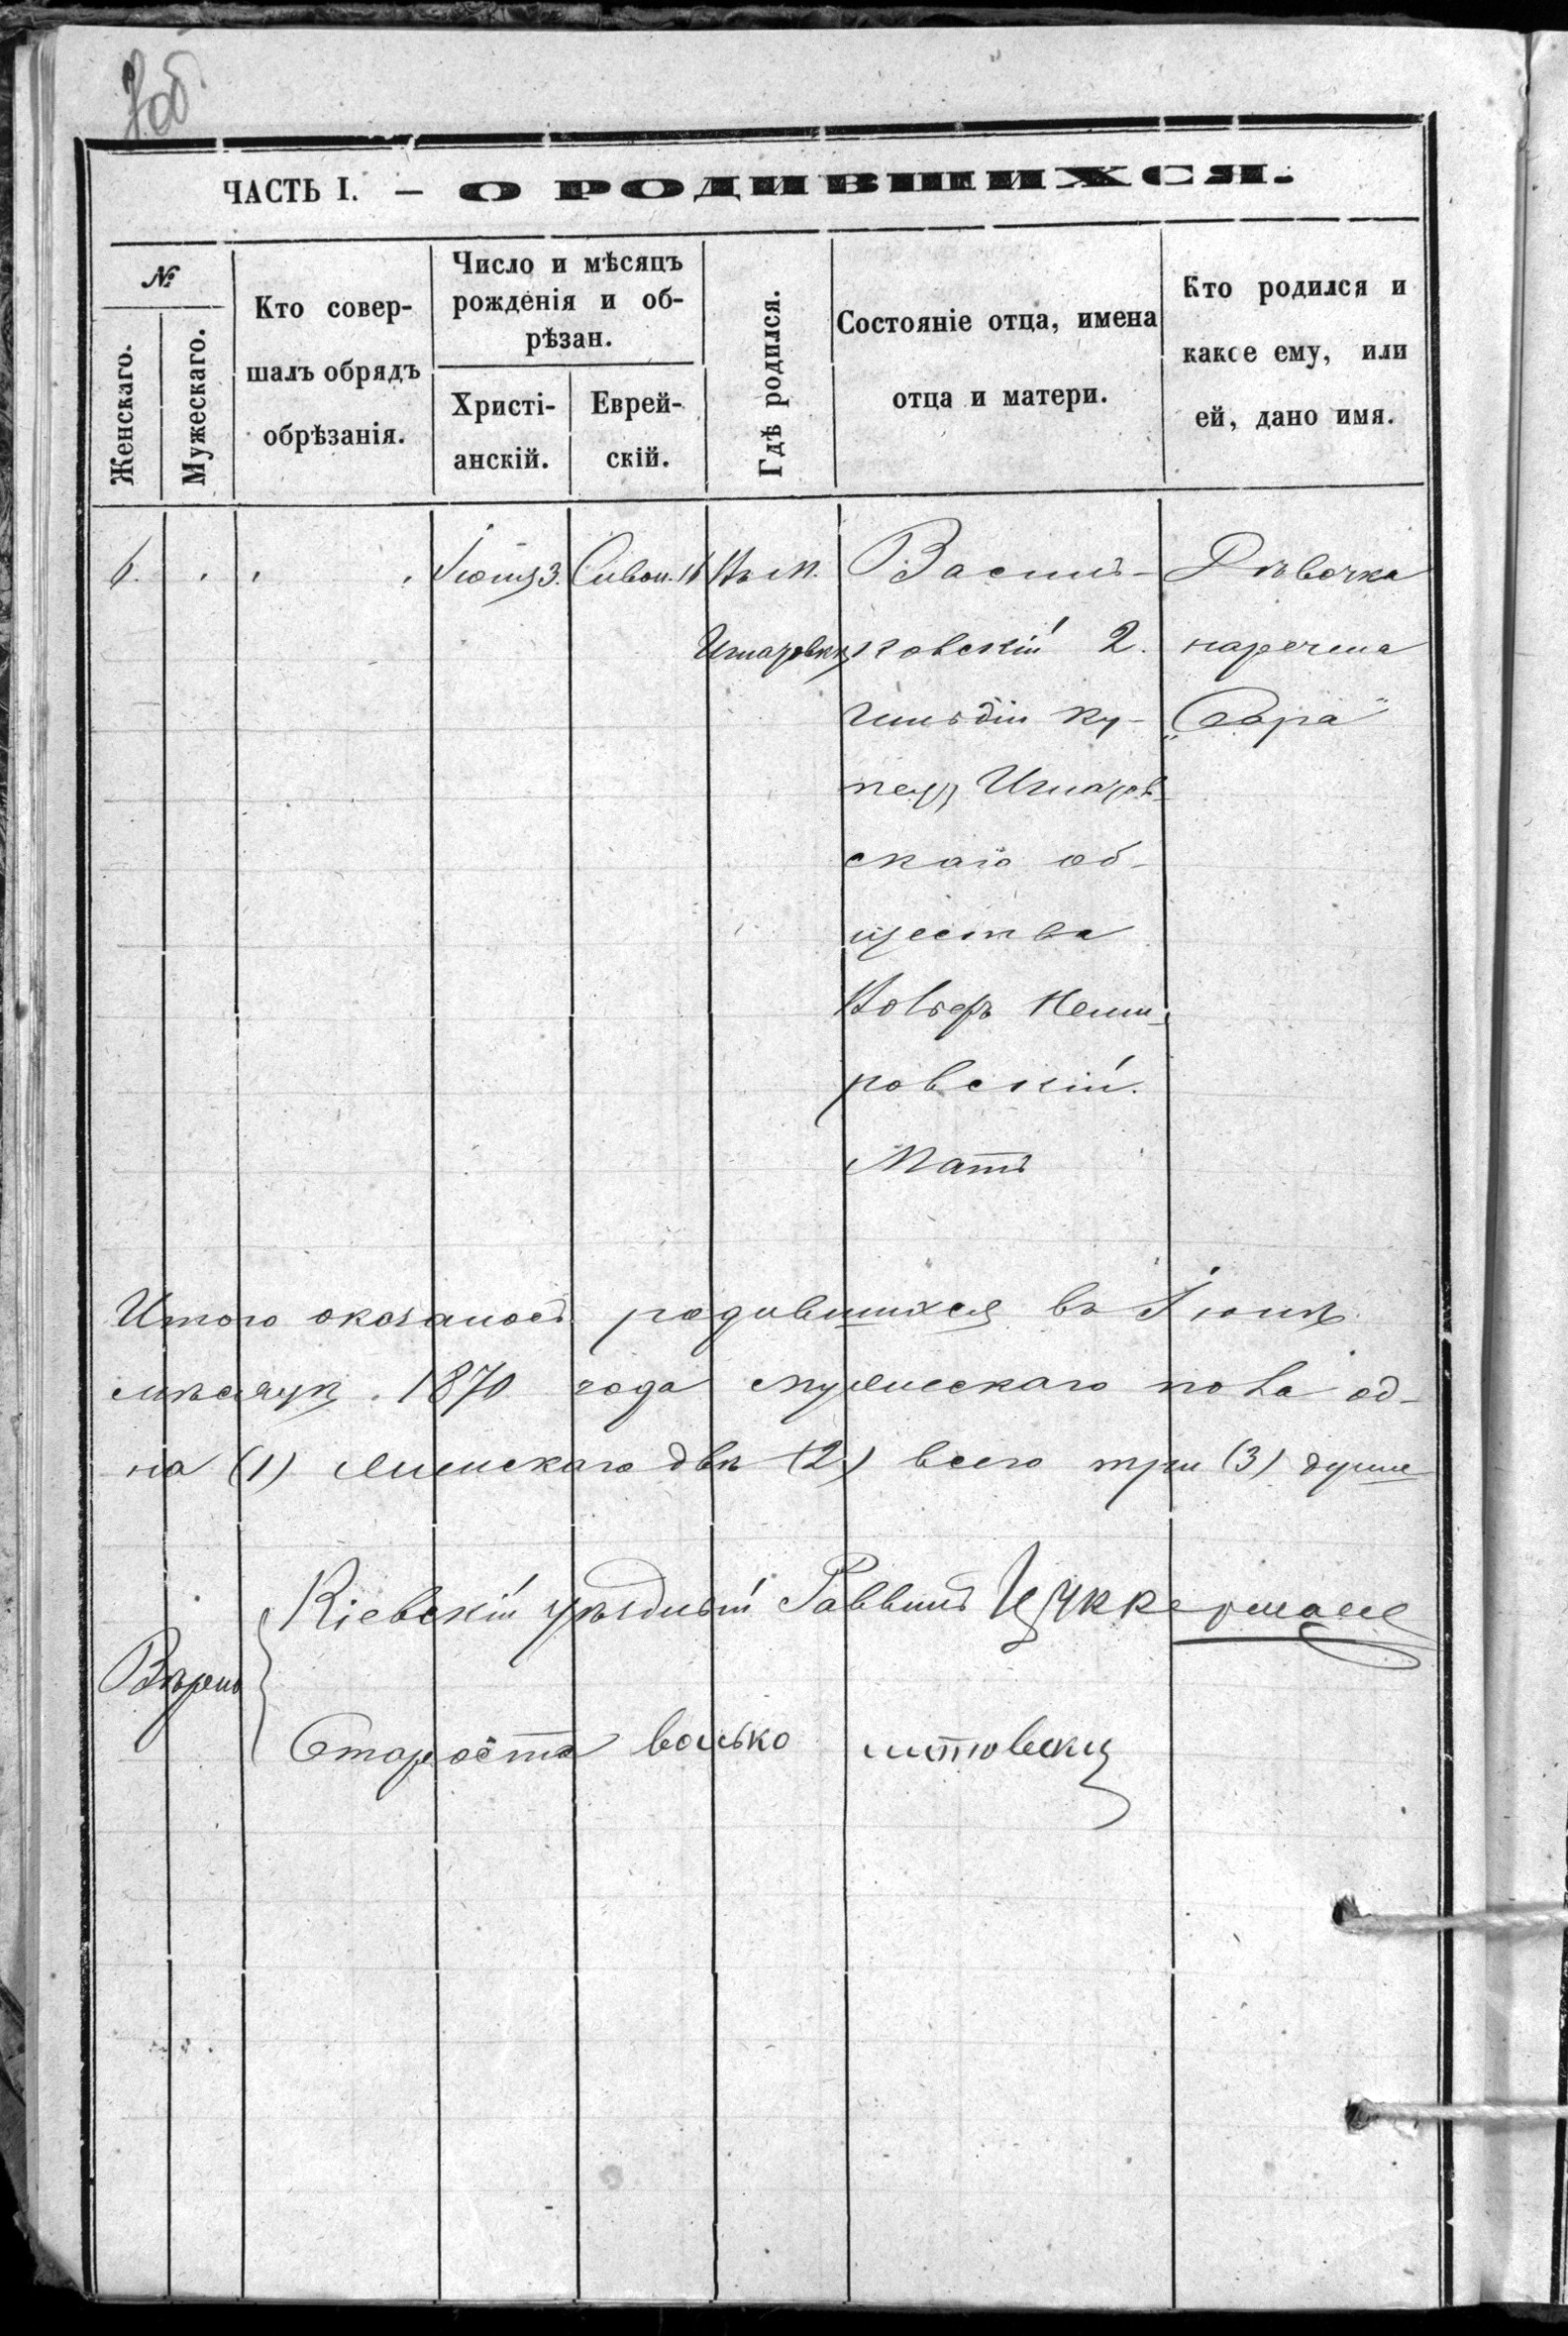 7 об.
ЧАСТЬ I. — О РОДИВШИХСЯ.
№
Женскаго.
Мужескаго.
Кто совер-
шалъ обрядъ
обрѣзанія.
Число и мѣсяцъ
рожденія и об-
рѣзан.
Христі-
анскій.
Еврей-
скій.
Гдѣ родился.
Состояніе отца, имена
отца и матери.
Кто родился и
какое ему, или
ей, дано имя.
6.
Іюня 3.
Сивон. 16
Въ м.
Игнаровкѣ
Василь-
ковскій 2.
гильдіи ку-
пецъ Игнаров-
скаго об-
щества
Неми-
ровскій.
Мать
Дѣвочка
наречена
„Сора"
Итого оказалось родившихся въ Іюнѣ
мѣсяцѣ 1870 года мужескаго пола од-
на (1) женскаго двѣ (2) всего три (3) души
Кіевскій уѣздный Раввинъ Цуккерманъ
Вѣрно
Староста волько литовски